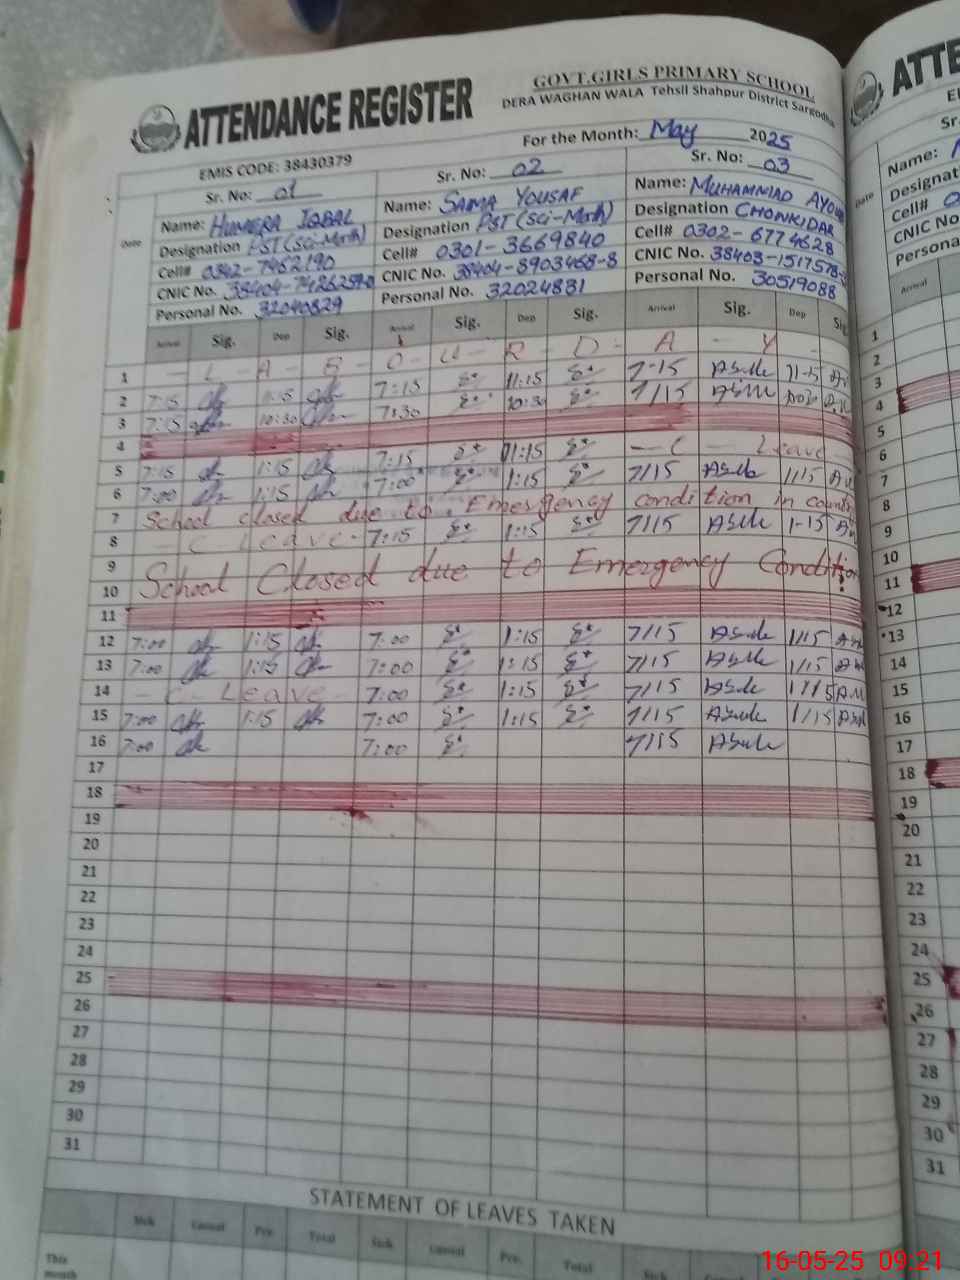 ATTENDANCE REGISTER
GOVT.GIRLS PRIMARY SCHOOL
DERA WAGHAN WALA Tehsil Shahpur District Sargodha
For the Month: May 2025
EMIS CODE: 38430379
Sr. No: 01 Sr. No: 02 Sr. No: 03
Date
Name: HUMERA IQBAL Name: SAIMA YOUSAF Name: MUHAMMAD AYOUB
Designation PST (Sci-Math) Designation PST (Sci-Math) Designation CHOWKIDAR
Cell# 0342-7452190 Cell# 0301-3669840 Cell# 0302-6774628
CNIC No. CNIC No. 38404-8903468-8 CNIC No. 38403-1517578-
Personal No. 32040829 Personal No. 32024831 Personal No. 30519088
Arrival Sig. Dep Sig. Arrival Sig. Dep Sig. Arrival Sig. Dep Sig
1 - L - A - B - O - U - R - D - A - Y -
2 7:15 1:15 7:15 11:15 7-15 11-15
3 7:15 10:30 7:30 10:30 7/15
4
5 7:15 1:15 7:15 1:15 - C - Leave -
6 7:00 1:15 7:00 1:15 7/15 1/15
7 School closed due to Emergency condition in country
8 - C Leave - 7:15 1:15 7/15 1-15
9
10 School Closed due to Emergency Condition
11
12 7:00 1:15 7:00 1:15 7/15 1/15
13 7:00 1:15 7:00 1:15 7/15 1/15
14 - C - Leave - 7:00 1:15 7/15 1/15
15 7:00 1:15 7:00 1:15 7/15 1/15
16 7:00 7:00 7/15
17
18
19
20
21
22
23
24
25
26
27
28
29
30
31
STATEMENT OF LEAVES TAKEN
Sick Casual Prv. Total Sick Casual Prv. Total Sick
This month
ATTE
Sr.
Name:
Designat
Cell#
CNIC No
Personal
Date
Arrival
1
2
3
4
5
6
7
8
9
10
11
12
13
14
15
16
17
18
19
20
21
22
23
24
25
26
27
28
29
30
31
16-05-25 09:21